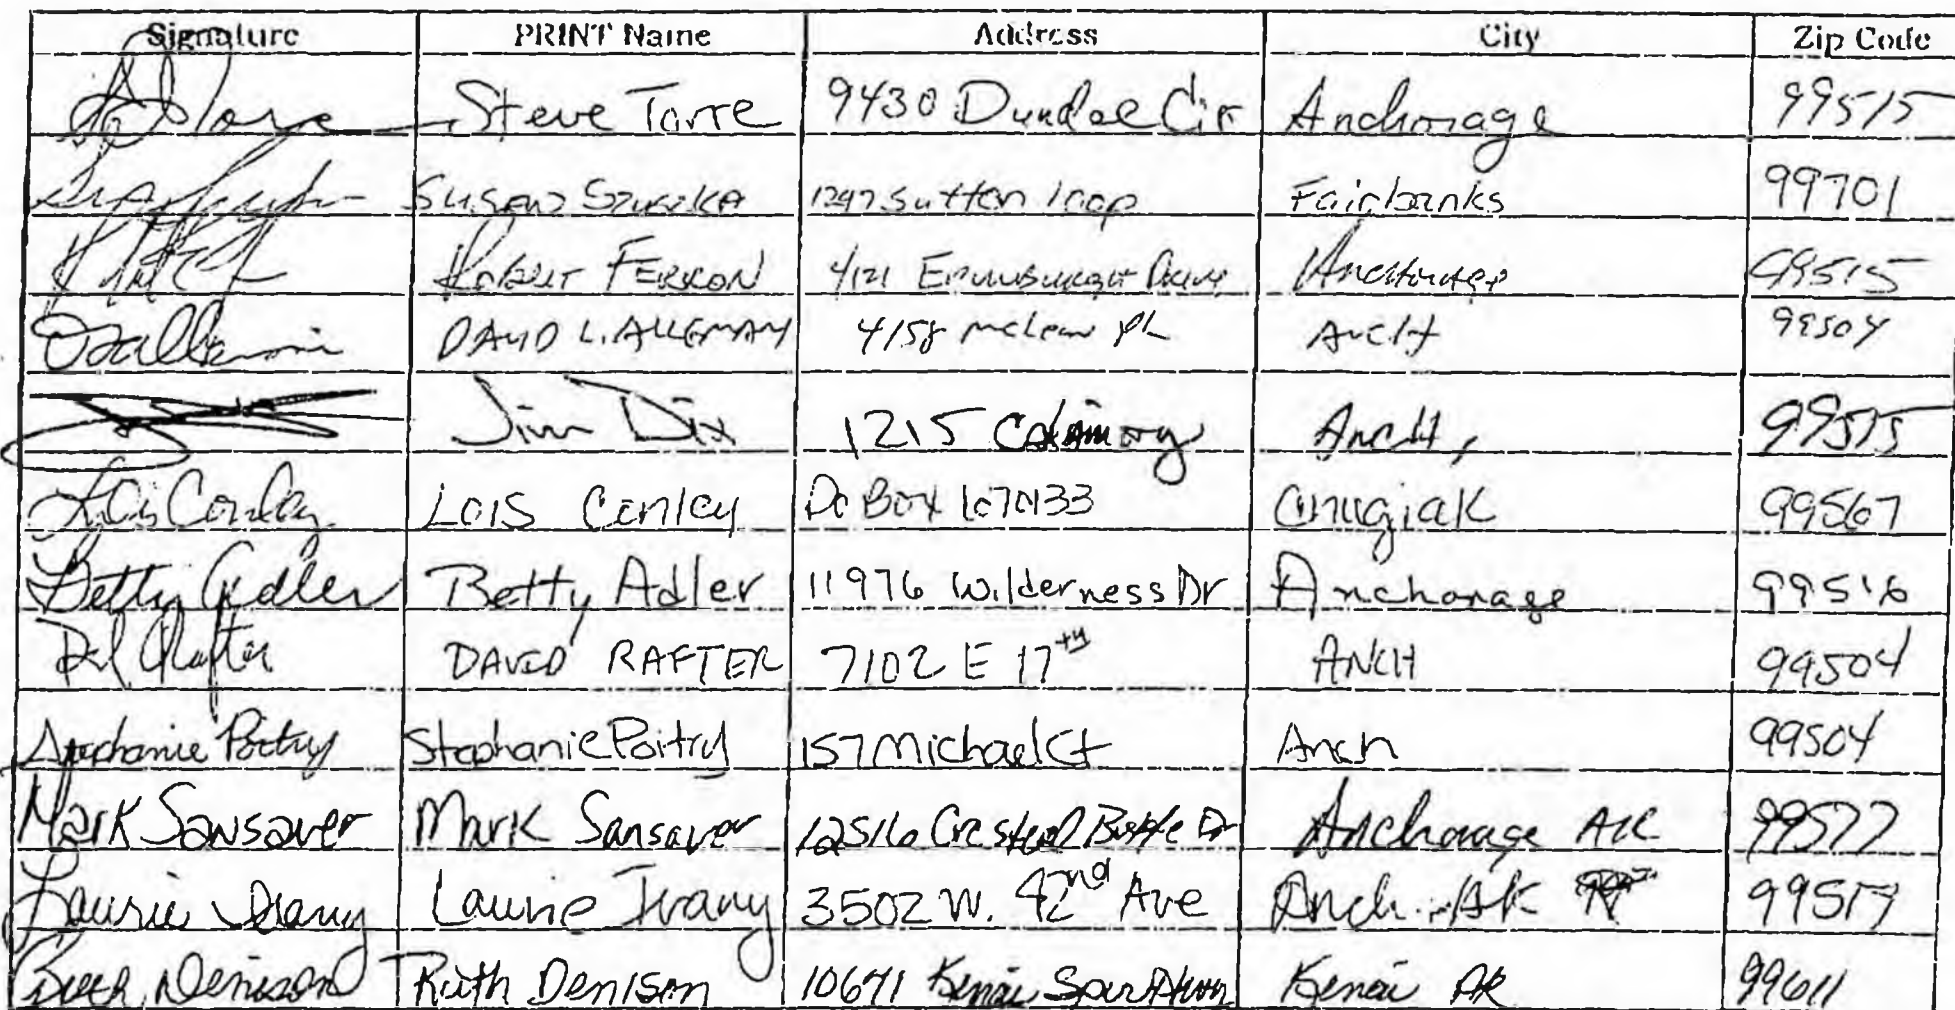 Signature PRINT Name Address City Zip Code
Steve Torre 9430 Dundee Cir Anchorage 99515
SUSAN 1297 Sutton loop Fairbanks 99701
Robert FERRON 4121 Anchorage 99515
DAVID L. ALLEMAN 4158 mclean pl AncH 99504
Jim Dix 1215 AncH, 99515
Lois Conley Lois Conley Po Box 670133 Chugiak 99567
Betty Adler Betty Adler 11976 Wilderness Dr Anchorage 99516
Rafter DAVID RAFTER 7102 E 17th ANCH 99504
Stephanie Poitry Stephanie Poitry 157 Michael Ct Anch 99504
Mark Sansaver Mark Sansaver 12516 Crested Butte Dr Anchorage AK 99577
Laurie Ivany Laurie Ivany 3502 W. 42nd Ave Anch. AK 99517
Ruth Denison Ruth Denison 10671 Kenai Spur Kenai AK 99611